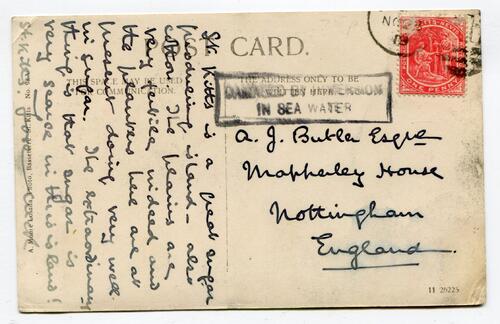 POST CARD.
THIS SPACE MAY BE USED
FOR COMMUNICATION.
THE ADDRESS ONLY TO BE
WRITTEN HERE
DAMAGED BY IMMERSION
IN SEA WATER
ONE PENNY
St. Kitts is a great sugar
producing island - also
cotton. The plains are
very fertile indeed and
the planters here are at
present doing very well
in sugar. The extraordinary
thing is that sugar is
very scarce in this island!
St. Kitts
A. J. Butler Esqre
Mapperley House
Nottingham
England.
A. Photo, Basseterre, St. Kitts No.
11 20225